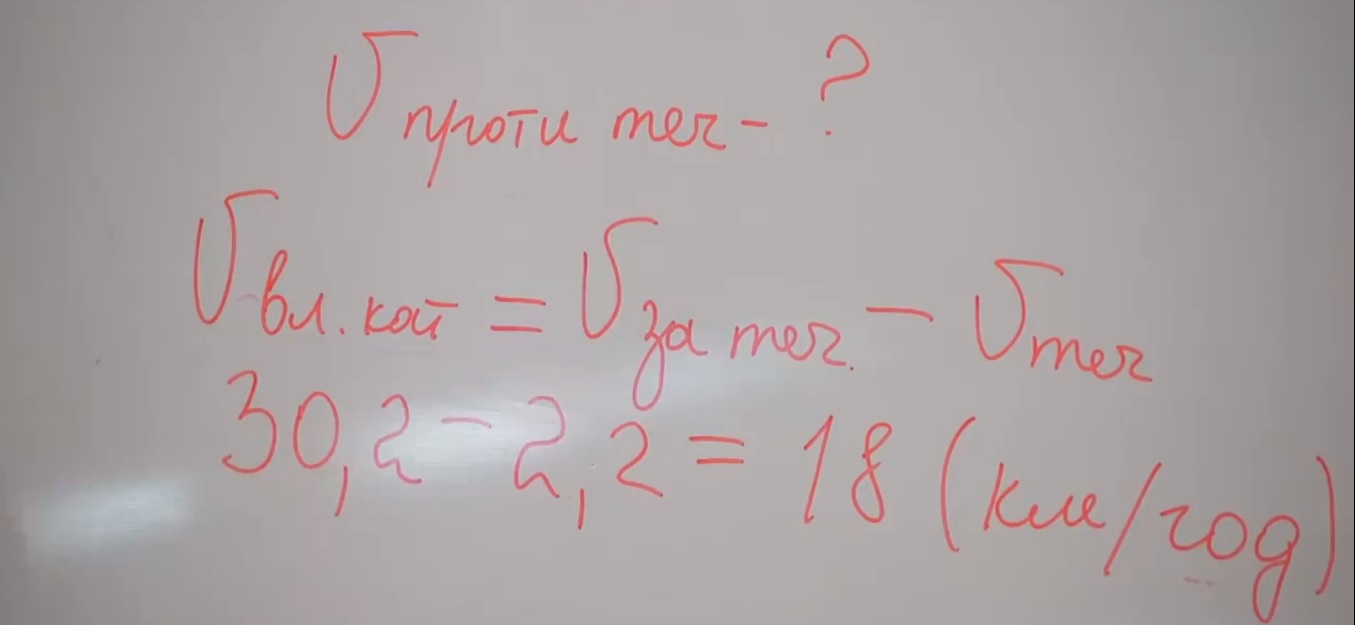 V проти теч - ?
V вл. кат = V за теч. - V теч
30,2 - 2,2 = 18 (км/год)